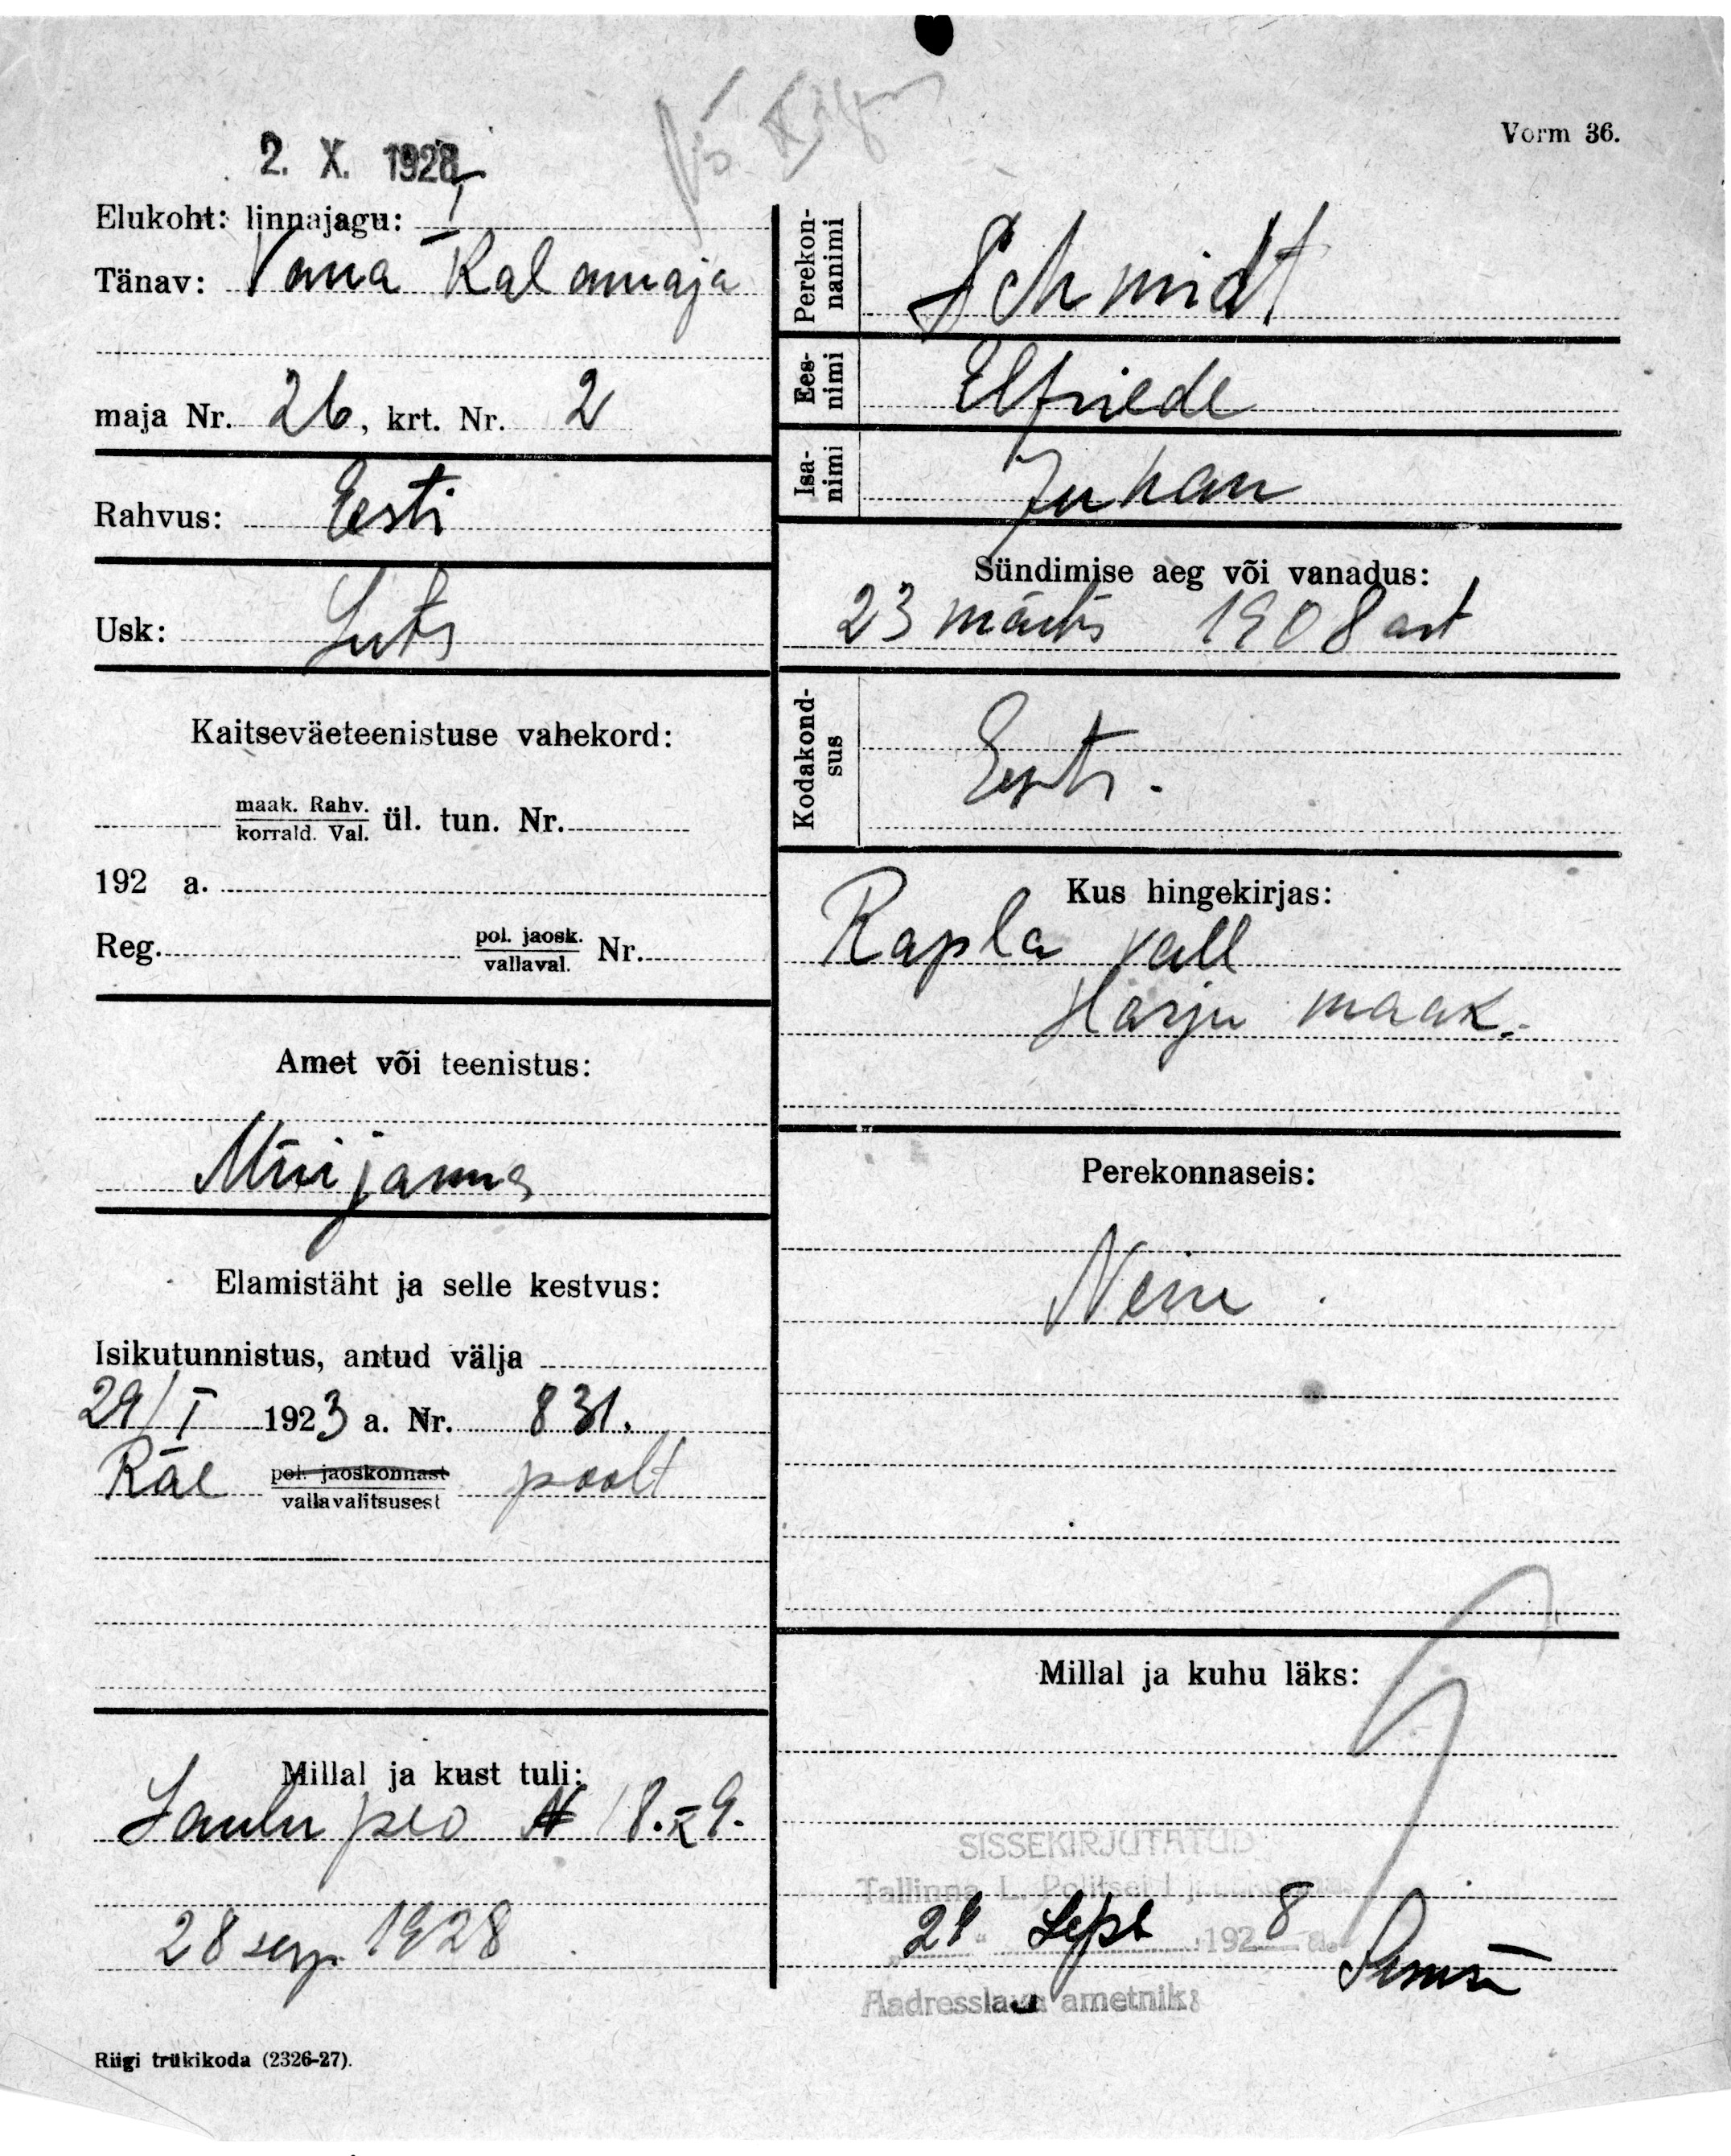 Vorm 36.
2. X. 1928
Elukoht: linnajagu: I
Tänav: Vana Kalamaja
maja Nr. 26, krt. Nr. 2
Rahvus: Eesti
Usk: Luts
Kaitseväeteenistuse vahekord:
maak. Rahv.
korrald. Val. ül. tun. Nr.
192 a.
Reg. pol. jaosk.
vallaval. Nr.
Amet või teenistus:
Müijanna
Elamistäht ja selle kestvus:
Isikutunnistus, antud välja
29/I 1923 a. Nr. 831.
Räe pol. jaoskonnast
vallavalitsusest poolt
Millal ja kust tuli:
Laulu peo N 18. k 9.
28 sep. 1928
Riigi trükikoda (2326-27).
Perekon-
nanimi Schmidt
Ees-
nimi Elfriede
Isa-
nimi Juhan
Sündimise aeg või vanadus:
23 märts 1908 ast
Kodakond-
sus Eesti.
Kus hingekirjas:
Rapla vall
Harju maak.
Perekonnaseis:
Neiu
Millal ja kuhu läks:
SISSEKIRJUTATUD
Tallinna L. Politsei I
29 Sept 1928 a.
Aadresslaua ametnik: